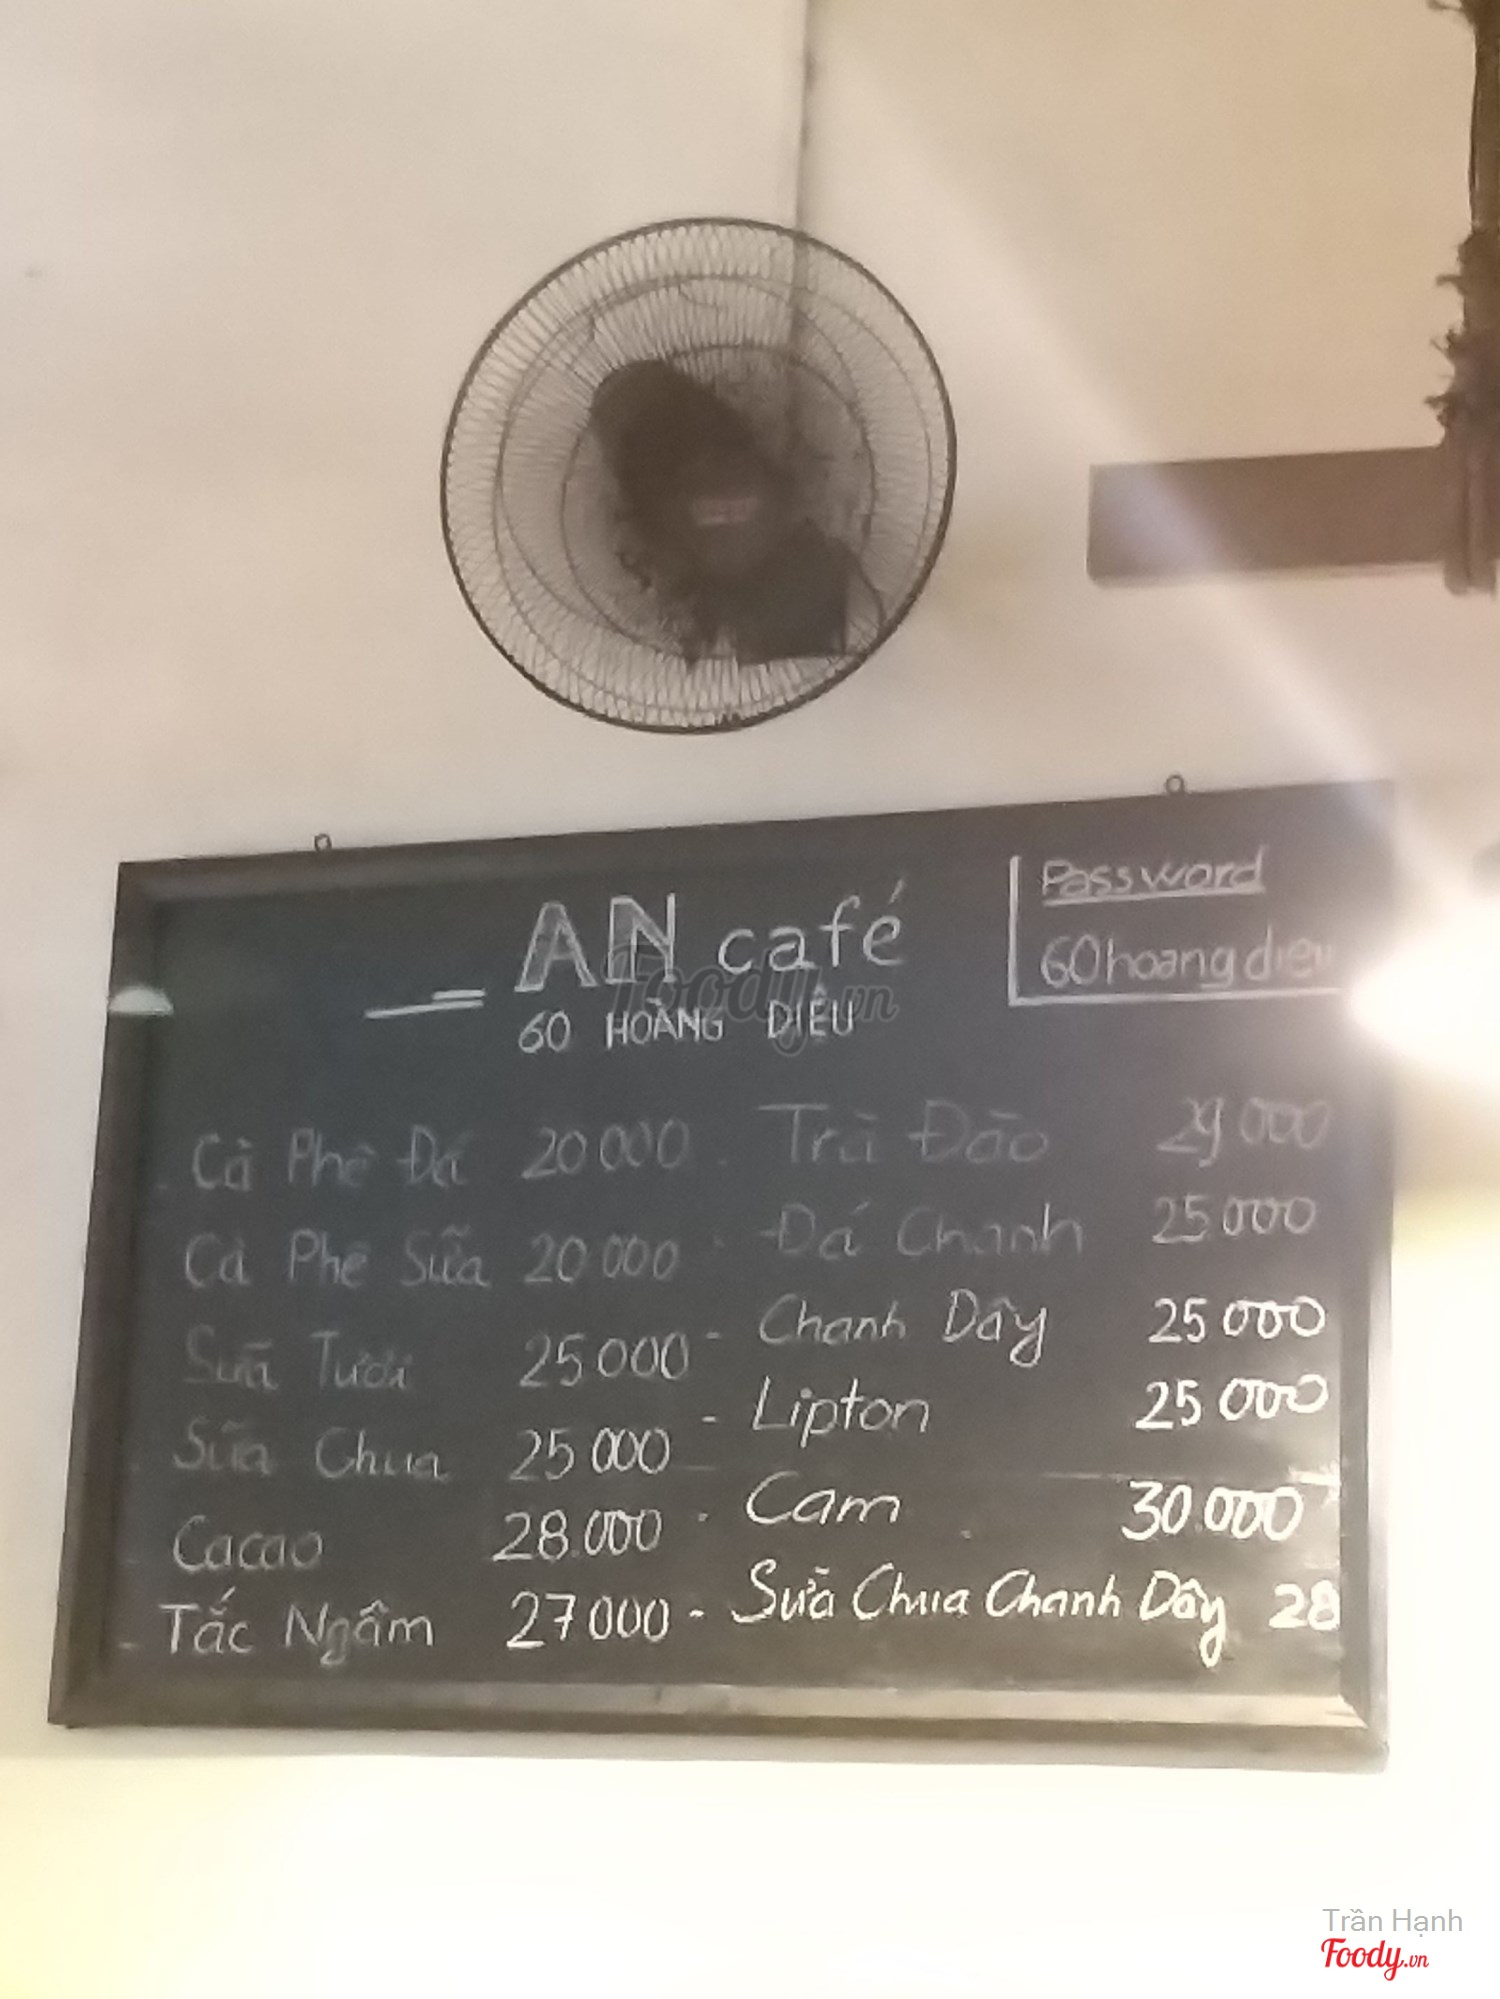 AN café
60 HOÀNG DIỆU
Password
60hoangdieu
Cà Phê Đá 20 000
Cà Phê Sữa 20 000
Sữa Tươi 25 000
Sữa Chua 25 000
Cacao 28.000
- Tắc Ngâm 27 000
- Trà Đào 29 000
- Đá Chanh 25 000
- Chanh Dây 25 000
- Lipton 25 000
- Cam 30.000
- Sữa Chua Chanh Dây 28
Foody.vn
Trần Hạnh
Foody.vn